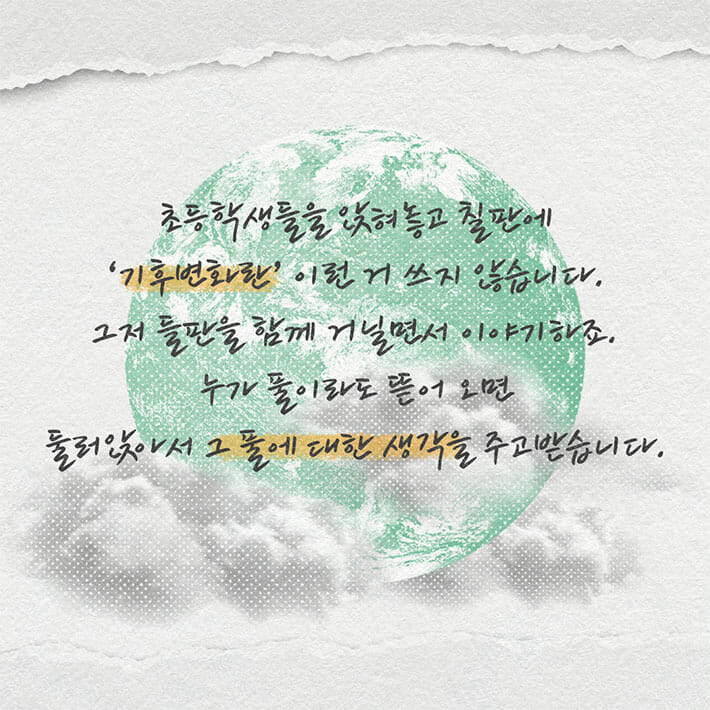 초등학생들을 앉혀놓고 칠판에
‘기후변화란’ 이런 거 쓰지 않습니다.
그저 들판을 함께 거닐면서 이야기하죠.
누가 풀이라도 뜯어 오면
둘러앉아서 그 풀에 대한 생각을 주고받습니다.